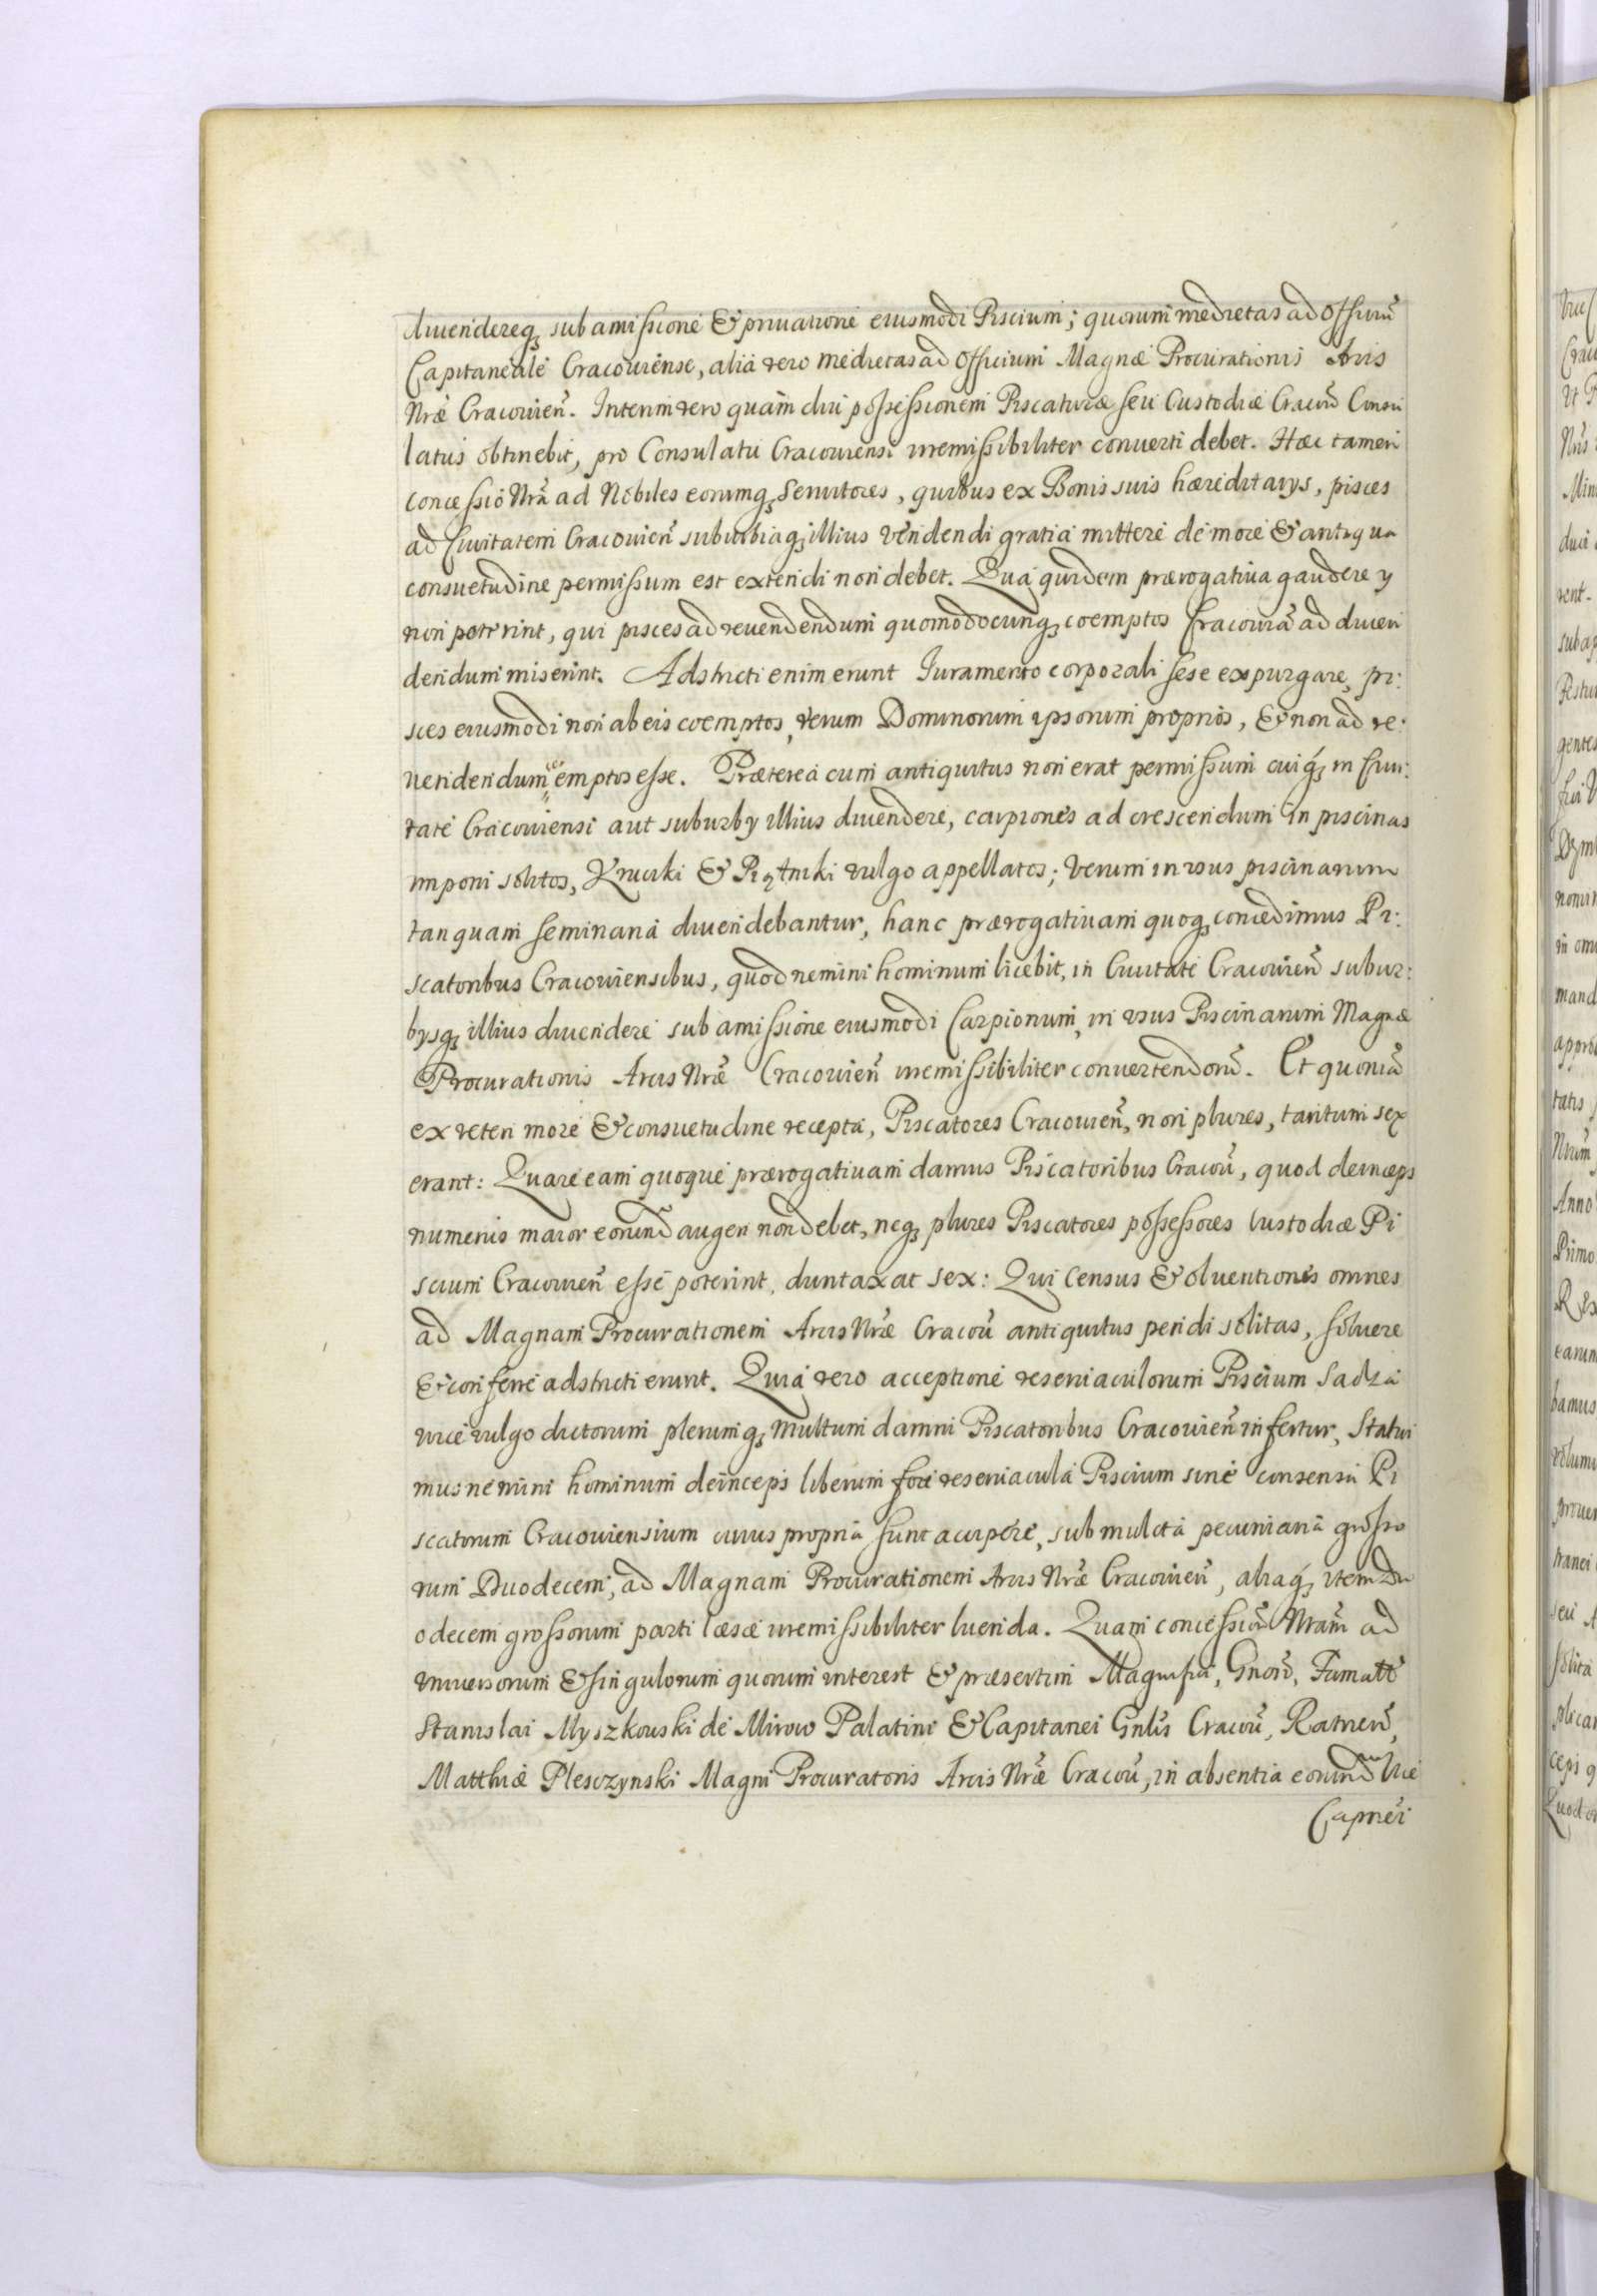 divendereq₃ sub amissione & privatione eiusmodi Piscium; quorum medietas ad Officiũ
Capitaneale Cracoviense, alia vero medietas ad Officium Magnæ Procurationis Arcis
Nræ̃ Cracovien̄. Interim vero quam diu possessionem Piscaturæ seu Custodiæ Cracov̄ Consu
latus obtinebit, pro Consulatu Cracoviensi irremissibiliter converti debet. Hæc tamen
concessio Nrã ad Nobiles eorumq₃ Servitores, quibus ex Bonis suis hæreditarys, pisces
ad Civitatem Cracovien̄ suburbiaq₃ illius vendendi gratia mittere de more & antiqua
consuetudine permissum est extendi non debet. Qua quidem prærogativa gaudere y
non poterint, qui pisces ad revendendum quomodocunq₃ coemptos Cracoviã ad diven
dendum miserint. Adstricti enim erunt Juramento corporali sese expurgare, pi:
sces eiusmodi non ab eis coemptos, verum Dominorum ipsorum proprios, & non ad re:
vendendum coemptos esse. Præterea cum antiquitus non erat permissum cuiq₃ in Civi:
tate Cracoviensi aut suburby illius divendere, carpiones ad crescendum in piscinas
imponi solitos, Kruczki & Piątniki vulgo appellatos; verum in usus piscinarum
tanquam seminaria divendebantur, hanc prærogativam quoq₃ concedimus Pi:
scatoribus Cracoviensibus, quod nemini hominum licebit, in Civitate Cracovien̄ subur:
bysq₃ illius divendere sub amissione eiusmodi Carpionum, in usus Piscinarum Magnæ
Procurationis Arcis Nræ̃ Cracovien̄ irremissibiliter convertendorũ. Et quoniã
ex veteri more & consuetudine recepta, Piscatores Cracovien̄, non plures, tantum sex
erant: Quare eam quoque prærogativam damus Piscatoribus Cracov̄, quod deinceps
numerus maior eorund̄ augeri non debet, neq₃ plures Piscatores possessores Custodiæ Pi
scium Cracovien̄ esse poterint, duntaxat sex: Qui Census & solventiones omnes
ad Magnam Procurationem Arcis Nræ̃ Cracov̄ antiquitus pendi solitas, solvere
& conferre adstricti erunt. Quia vero acceptione reservaculorum Piscium Sadza
wice vulgo dictorum plerumq₃ multum damni Piscatoribus Cracovien̄ infertur, Statui
mus nemini hominum deinceps liberum fore reservacula Piscium sine consensu Pi
scatorum Cracoviensium cuius propria sunt accipere, sub mulcta pecuniaria grosso
rum Duodecem, ad Magnam Procurationem Arcis Nræ̃ Cracovien̄, aliaq₃ item Du
odecem grossorum parti læsæ irremissibiliter luenda. Quam concessionẽ Nram̃ ad
universorum & singulorum quorum interest & præsertim Magnifici, Gnorũ, Famatt̄
Stanislai Myszkowski de Mirow Palatini & Capitanei Gnlis̃ Cracov̄, Ratnen̄,
Matthiæ Plesczynski Magni Procuratoris Arcis Nræ̃ Cracov̄, in absentia eorund̄ Vice
Capnei̅